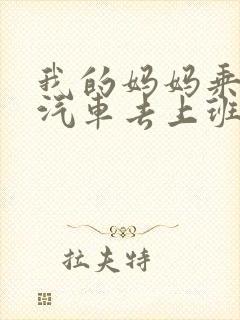 我的妈妈乘
汽车去上班
拉夫特